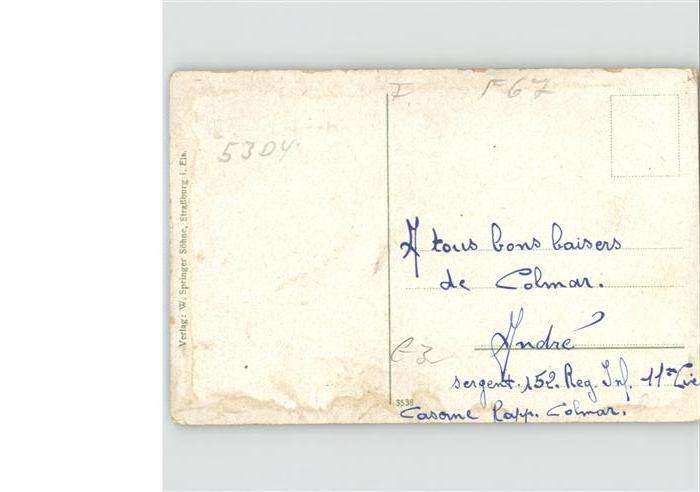 I F 67
53D4.
Verlag: W. Springer Söhne, Straßburg i. Els.
A tous bons baisers
de Colmar.
André
sergent. 152. Reg. Inf. 11e Cie
Caserne Rapp. Colmar.
5538